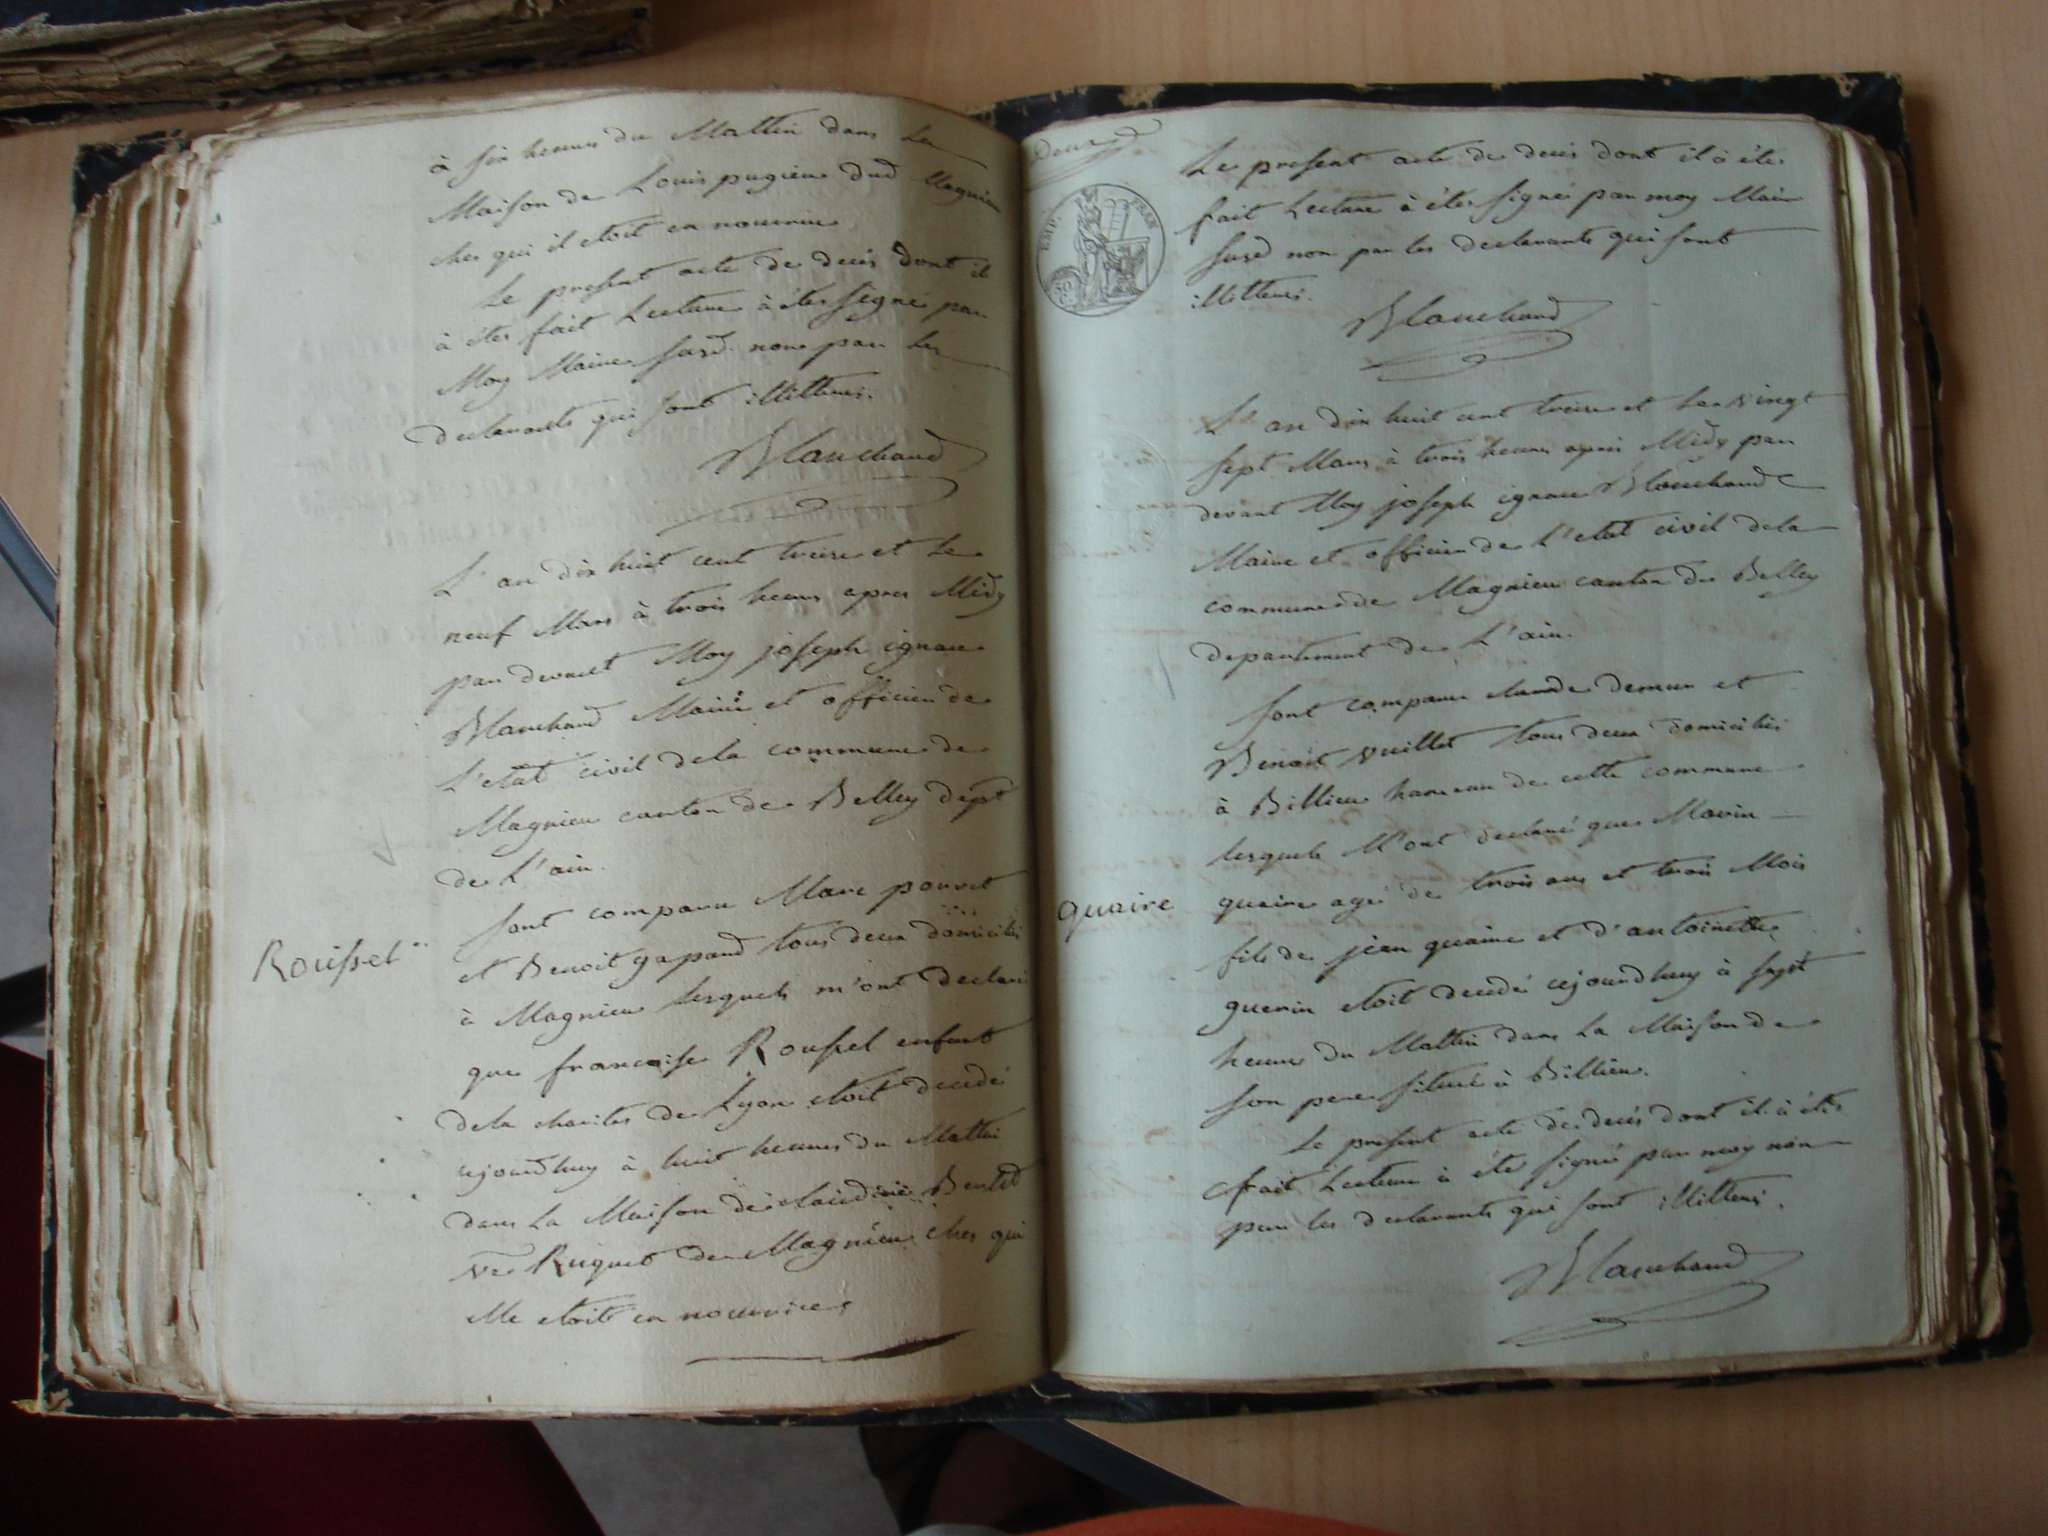 à six heures du Mattin dans La
Maison de Louis pugieu dud Magnieu
ches qui il etoit en nourrice
Le present acte de deces dont il
à étes fait Lecture à étes signé par
Moy Maire susd. non par Les
declarants qui sont illitterés.
Blanchard
L'an dix huit cent treize et Le
neuf Mars à trois heures apres Midy
par devant Moy joseph ignace
Blanchard Maire et officier de
L'etat civil dela commune de
Magnieu canton de Belley dept
de L'ain.
sont comparu Marc pourret
Roussel
et Benoit gapand tous deux domiciliés
à Magnieu lesquels m'ont declaré
que francoise Roussel enfant
dela charites de Lyon etoit decedé
cejourdhuy à huit heures du Mattin
dans La Maison de claudine
ve Riquet de Magnieu ches qui
elle etoit en nourrice
Deux
EMP. FRAN
50 C.
Le present acte de deces dont il à étes
fait Lecture à étes signé par moy Maire
susd non par les declarants qui sont
illitteres.
Blanchard
L'an dix huit cent treize et Le vingt
sept Mars à trois heures apres Midy par
devant Moy joseph ignace Blanchard
Maire et officier de L'etat civil dela
commune de Magnieu canton de Belley
departement de L'ain.
sont comparu claude demeur et
Benoit vuillet tous deux domiciliés
à Billieu hameau de cette commune
lesquels M'ont declaré que Marin
quaire
quaire agé de trois ans et trois Mois
fils de jean quaire et d'antoinette
guerin etoit decedé cejourdhuy à sept
heures du Mattin dans La Maison de
son pere situé à Billieu.
Le present acte de deces dont il à étes
fait Lecture à été signé par moy non
par les declarants qui sont illitterés.
Blanchard